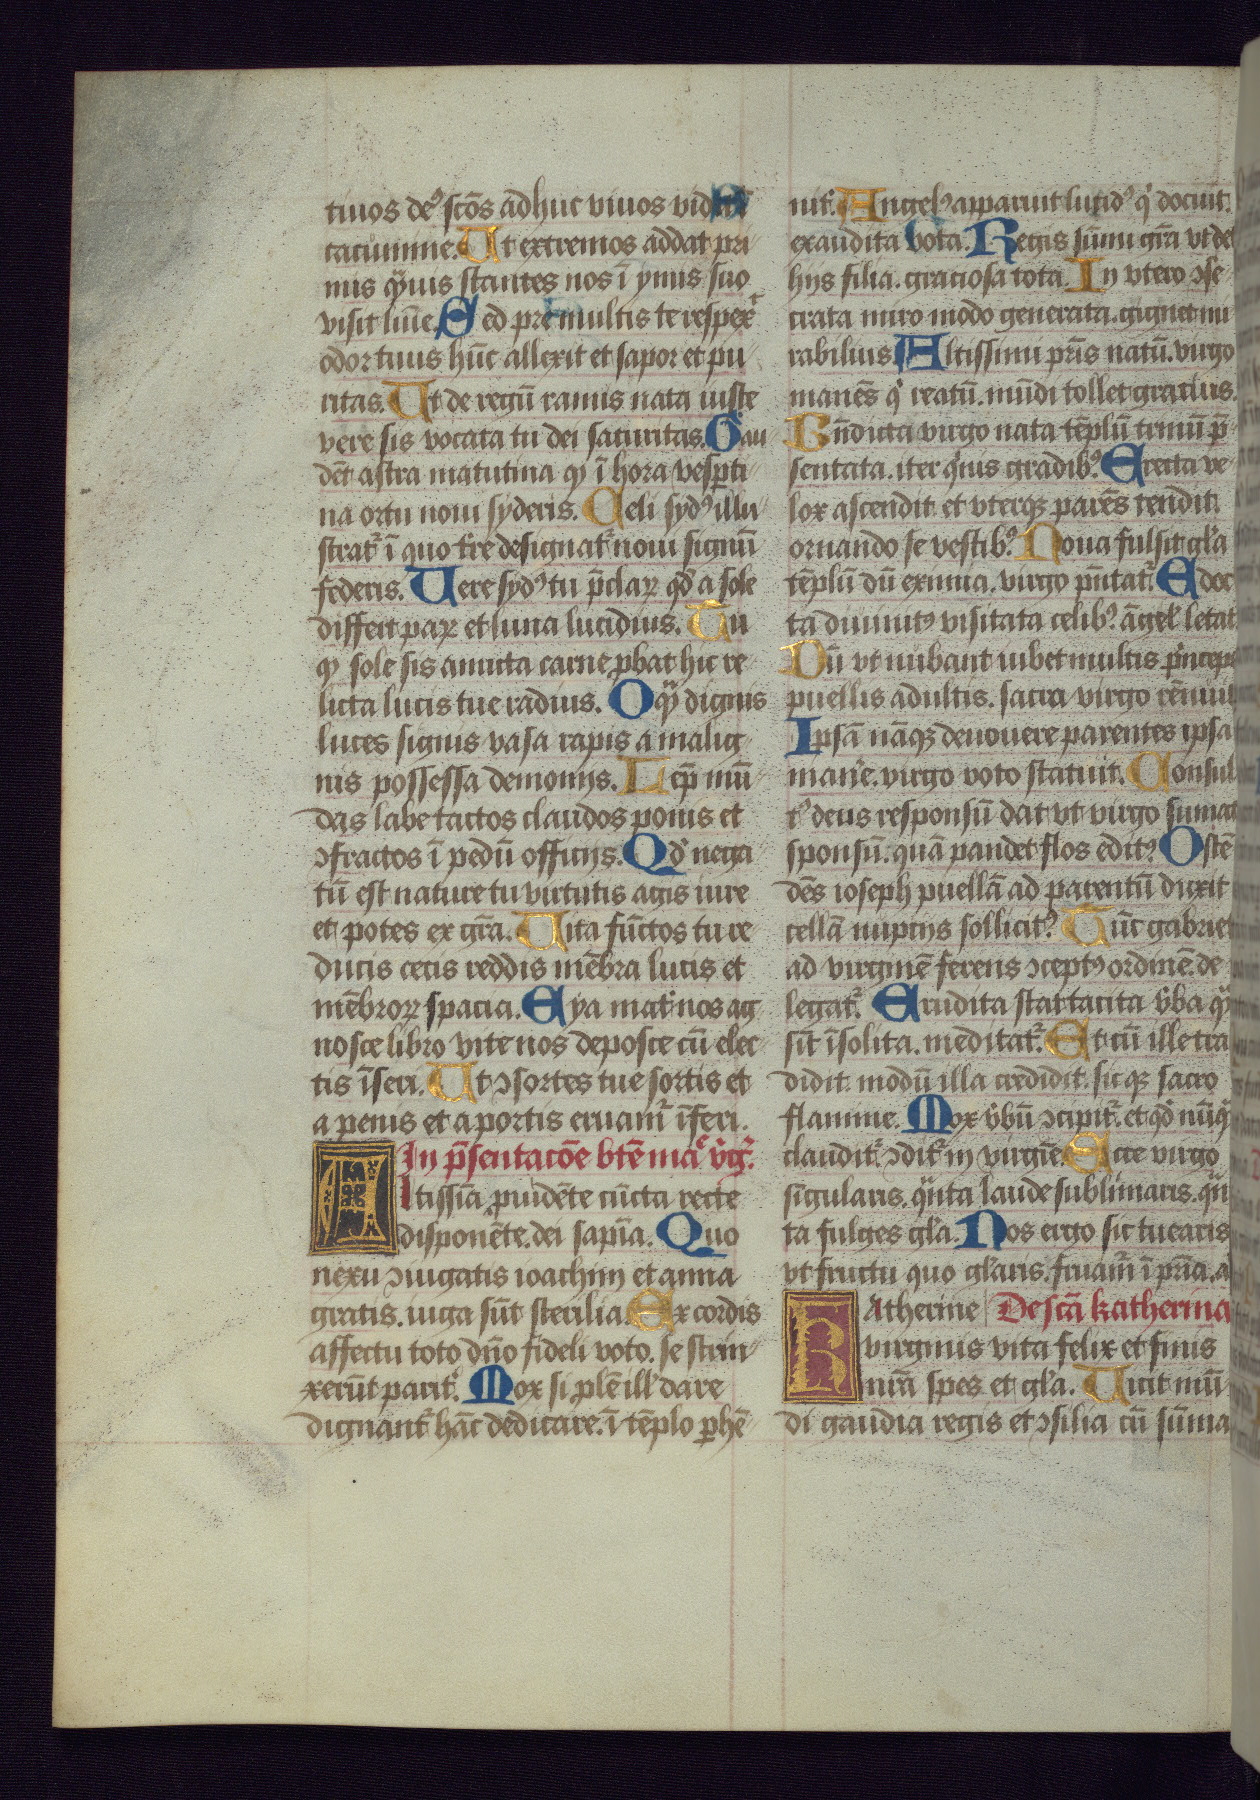 tiuos deꝰ scōs adhuc viuos
tacuimne. Ut extremos addat pri
mis qͥuis stantes nos ī ymis suo
visit lumē. Sed pre multis te respexͭ
odor tuus hūc allexit et sapor et pu
ritas. Ut de regū ramis nata iuste
vere sis vocata tu dei saturitas. Gau
dēt astra matutina qͥ ī hora vesꝑti
na ortu noui syderis. Celi sydꝰ illu
stratͬ ī quo tͬre designatͬ noui signū
federis. Vere sydꝰ tu p̄claꝝ qd̓ a sole
differt paꝝ et luna lucidius. Un
qͥ sole sis amicta carne ꝓbat hic re
licta lucis tue radius. O qͣ dignis
luces signis vasa rapis a malig
nis possessa demonijs. Lep̄ mū
das labe tactos claudos ponis et
ɔfractos ī pedū officijs. Qd̓ nega
tū est nature tu virtutis agis iure
et potes ex grā. Uita fūctos tu re
ducis cecis reddis mēbra lucis et
mēbroꝝ spacia. Eya matͬ nos ag
nosce libro vite nos deposce cū elec
tis īseri. Ut ɔsortes tue sortis et
a penis et a portis eruamͬ īferi.
In p̄sentacōe btē maͥe v̓gͥ.
Altissīa ꝓuidēte cūcta recte
disponēte. dei sapīa. Quo
nexu ɔiugatis ioachim et anna
gratis. iuga sūt sterilia. Ex cordis
affectu toto dn̄o fideli voto. se strin
xerūt paritͬ. Mox si ꝓlē ill̓ dare
dignantͬ hāc dedicare. ī tēplo ꝑhē
nitͬ. Angelꝰ apparuit lucidꝰ qͥ docuit.
exaudita vota. Regis sūmi grā vt de
hijs filia. graciosa tota. In vtero ɔse
crata miro modo generata. gignet mi
rabilius. Altissimi pr̄is natū. virgo
manēs qͥ reatū. mūdi tollet gracius.
Bn̄dicta virgo nata tēplū trimū p̄
sentata. iter qͥuis gradibꝰ. Erecta ve
lox ascendit. et vterqꝫ parēs tendit.
ornando se vestibꝰ. Noua fulsit gl̓a
tēplū dū eximia. virgo p̄ntatͬ. Edoc
ta diuinitꝰ visitata celibꝰ. āgel̓ letat
Dū vt nubant iubet multis pͥnceps
puellis adultis. sacra virgo rēnuit
Ipsā nāqꝫ deuouere parentes ipsā
manͬe. virgo voto statuit. Consul
tꝰ deus responsū dat vt virgo sumat
sponsū. quā pandet flos editꝰ. Ostē
dēs ioseph puellā ad parentū duxit
cellā nuptijs sollicitꝰ. Tūc gabriel
ad virginē ferens ɔceptꝰ ordinē. de
legatͬ. Erudita stat tacita v̓ba qͣ
sūt īsolita. meditatͬ. Et cū ille tra
didit. modū illa credidit. sicqꝫ sacro
flamine. Mox v̓bū ɔcipitͬ. et qd̓ nūqͣ
clauditͬ. ɔditͬ in virgīe. Ecce virgo
sīgularis. qͣnta laude sublimaris. qͣn
ta fulges gl̓a. Nos ergo sic tuearis
vt fructu quo gl̓aris. fruamͬ ī pr̄ia. a
Katherine De scā katherina
virginis vita felix et finis
nr̄a spes et gl̓a. Uicit mū
di gaudia regis et ɔsilia cū sūma